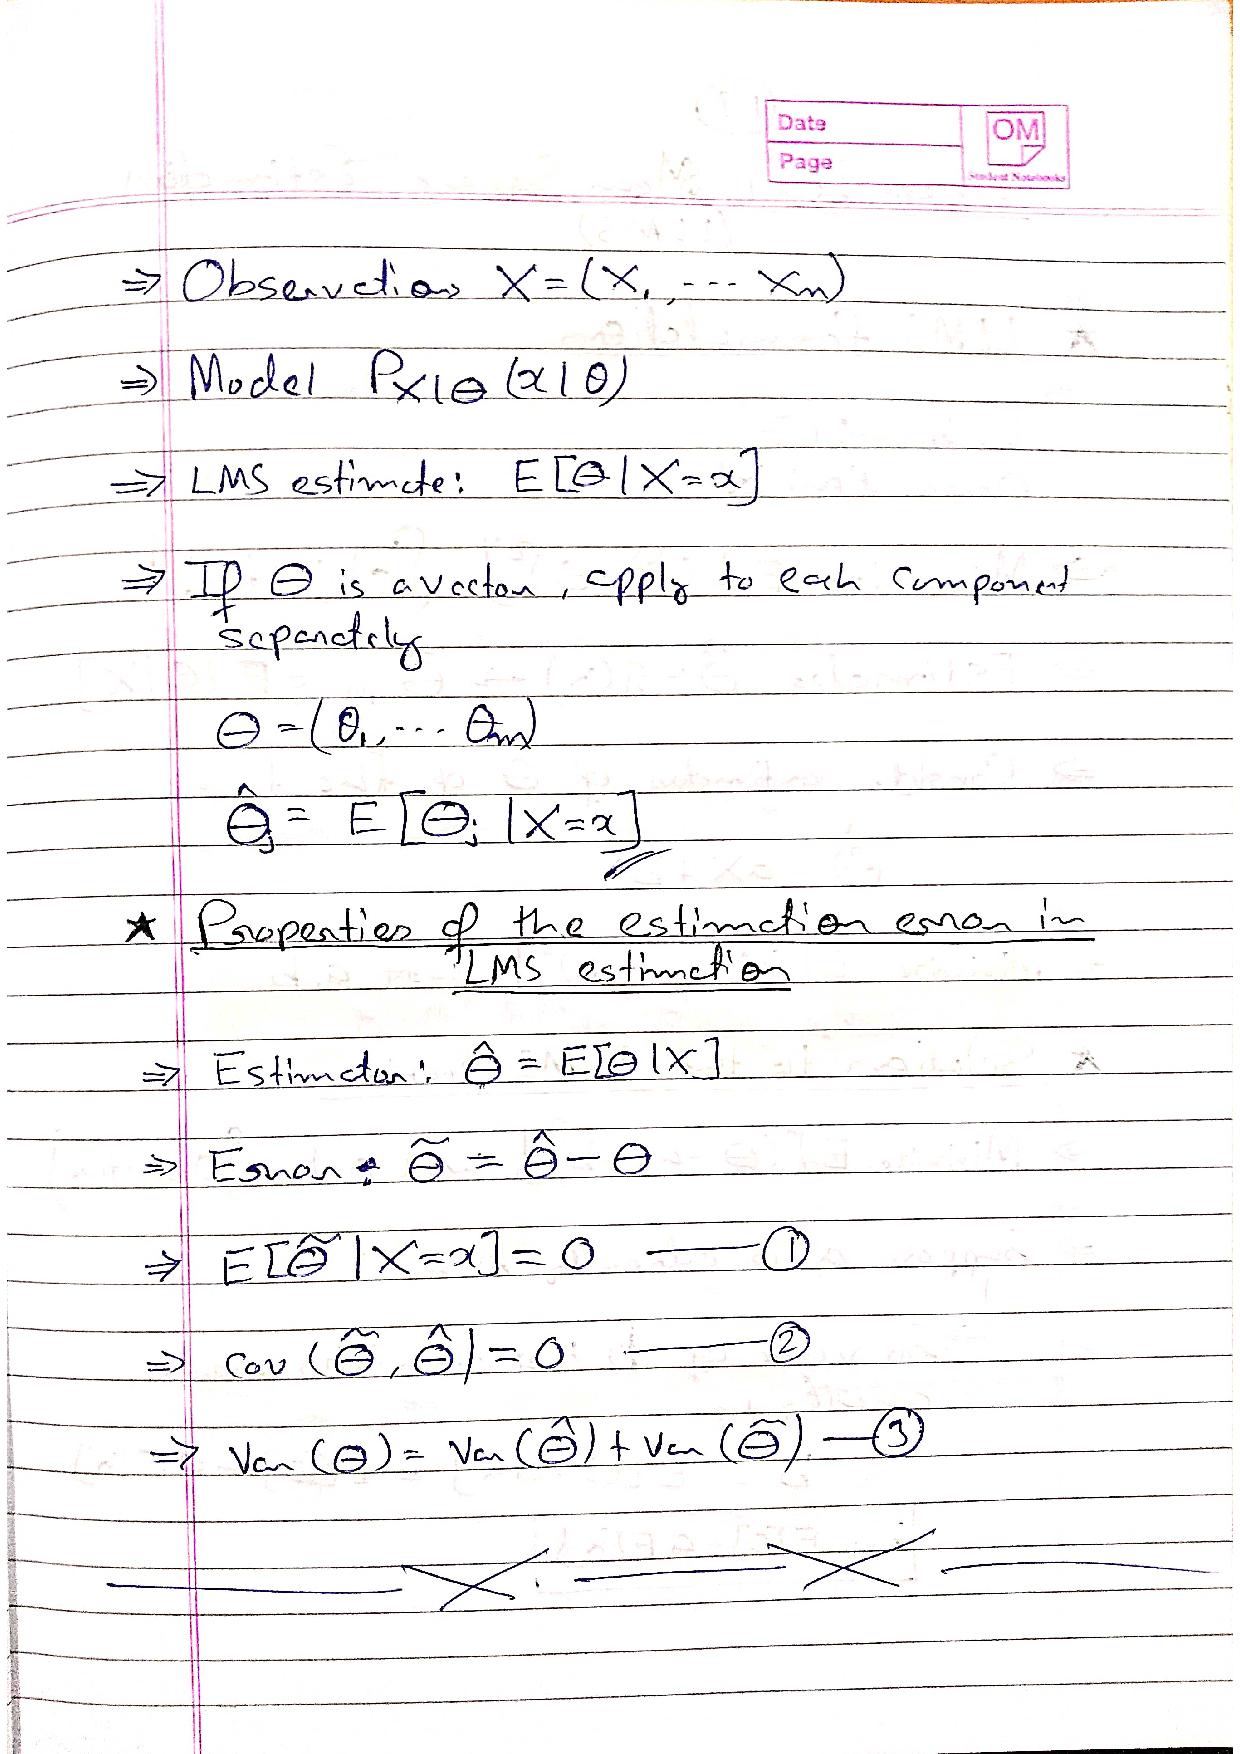 Date
Page
OM
Student Notebooks
⇒ Observations X = (X₁, --- Xₙ)
⇒ Model P_X|Θ (x | θ)
⇒ LMS estimate: E[Θ | X=x]
⇒ If Θ is a vector, apply to each component
separately
Θ = (Θ₁, --- Θₘ)
Θ̂ⱼ = E[Θⱼ | X=x]
★ Properties of the estimation error in
LMS estimation
⇒ Estimator: Θ̂ = E[Θ | X]
⇒ Error: Θ̃ = Θ̂ − Θ
⇒ E[Θ̃ | X=x] = 0 —— ①
⇒ cov(Θ̃, Θ̂) = 0 —— ②
⇒ Var(Θ) = Var(Θ̂) + Var(Θ̃) — ③